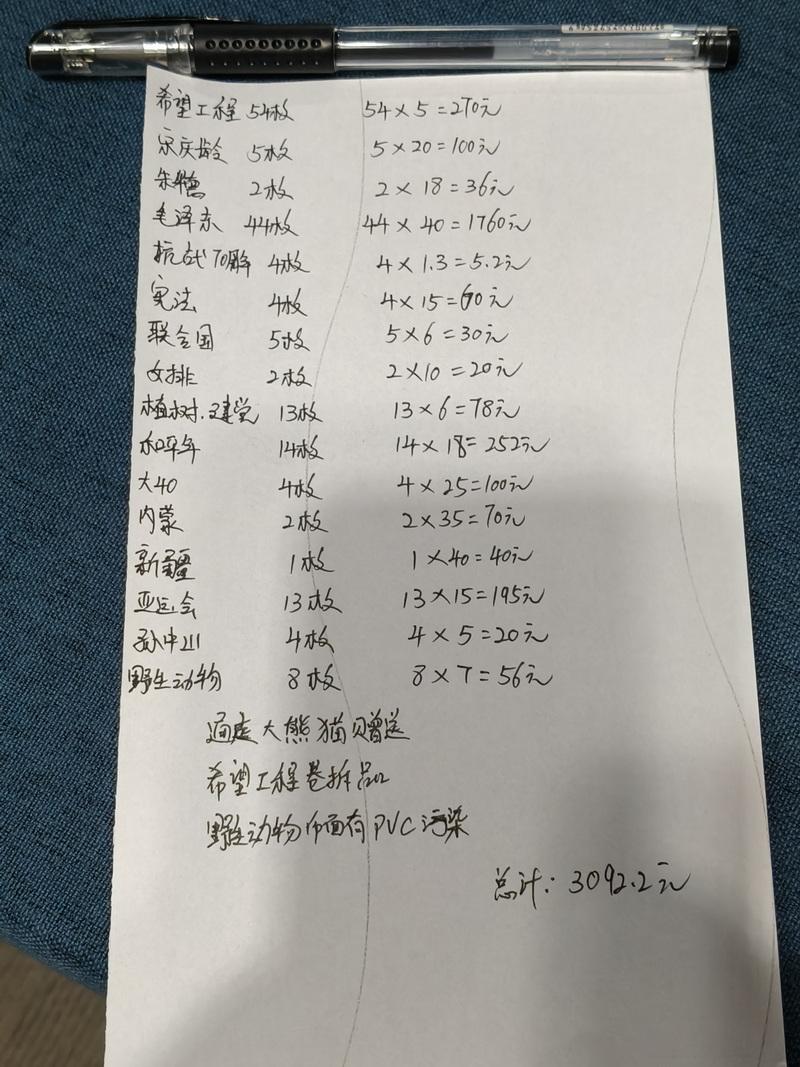 6952654C100148
希望工程 54枚 54×5=270元
宋庆龄 5枚 5×20=100元
朱德 2枚 2×18=36元
毛泽东 44枚 44×40=1760元
抗战70周年 4枚 4×1.3=5.2元
宪法 4枚 4×15=60元
联合国 5枚 5×6=30元
女排 2枚 2×10=20元
植树.建党 13枚 13×6=78元
和平年 14枚 14×18=252元
大40 4枚 4×25=100元
内蒙 2枚 2×35=70元
新疆 1枚 1×40=40元
亚运会 13枚 13×15=195元
孙中山 4枚 4×5=20元
野生动物 8枚 8×7=56元
大熊猫赠送
希望工程卷拆品
野生动物币面有PVC污染
总计:3092.2元